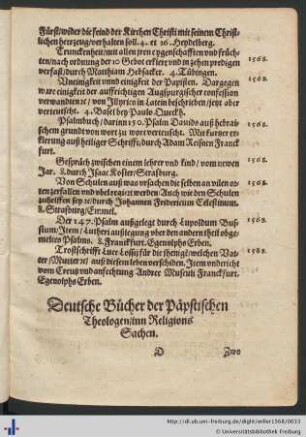 Fürst/wider die feind der Kirchen Christi mit seinem Christ-
lichen herzeug/verhalten soll. 4. et 16. Heydelberg.
Trunckenheit/mit allen jren eygenschafften vnd früch-
ten/nach ordnung der 10 Gebot erklert/vnd in zehen predigen 1568.
verfaßt/durch Matthiam Hebsacker. 4. Tübingen.
Vneinigkeit vnnd einigkeit der Papisten. Dargegen
ware einigkeit der auffrichtigen Augspurgischer confession
verwandten et/von Illyrico in Latein beschrieben/jetzt aber 1568.
verteutscht. 4. Basel bey Paulo Queckh.
Psalmbuch/darinn 150. Psalm Dauids auß hebrai-
schem grundt von wort zu wort verteutscht. Mit kurtzer er-
klerung auß heiliger Schrifft/durch Adam Reisnern Franck- 1568.
furt.
Gespräch zwischen einem lehrer vnd kind/vom newen
Jar. 8. durch Isaac Kosler/Strasburg. 1568.
Von Schulen auß was vrsachen die selben an vilen or-
ten zerfallen vnd
zuhelffen sey et/durch Johannem Fridericum Celestinum. 1568.
8. Strasburg/Emmel.
Der 147. Psalm außgelegt durch Lupoldum Bus-
sium/Item/Lutheri außlegung vber den andern theil obge-
meltes Psalms. 8. Franckfurt. Egenolphs Erben. 1568.
Trostschriffte Luce Lossij für die jhenigē/welchen Vat-
ter/Muter et auß diesem leben verschiden. Item vnderricht
vom Creutz vnd anfechtung Andree Musculi Franckfurt. 1568.
Egenolphs Erben.
Deutsche Bücher der Päpstischen
Theologen/inn Religions
Sachen.
D Zwo
http://dl.ub.uni-freiburg.de/diglit/willer1568/0033
© Universitätsbibliothek Freiburg